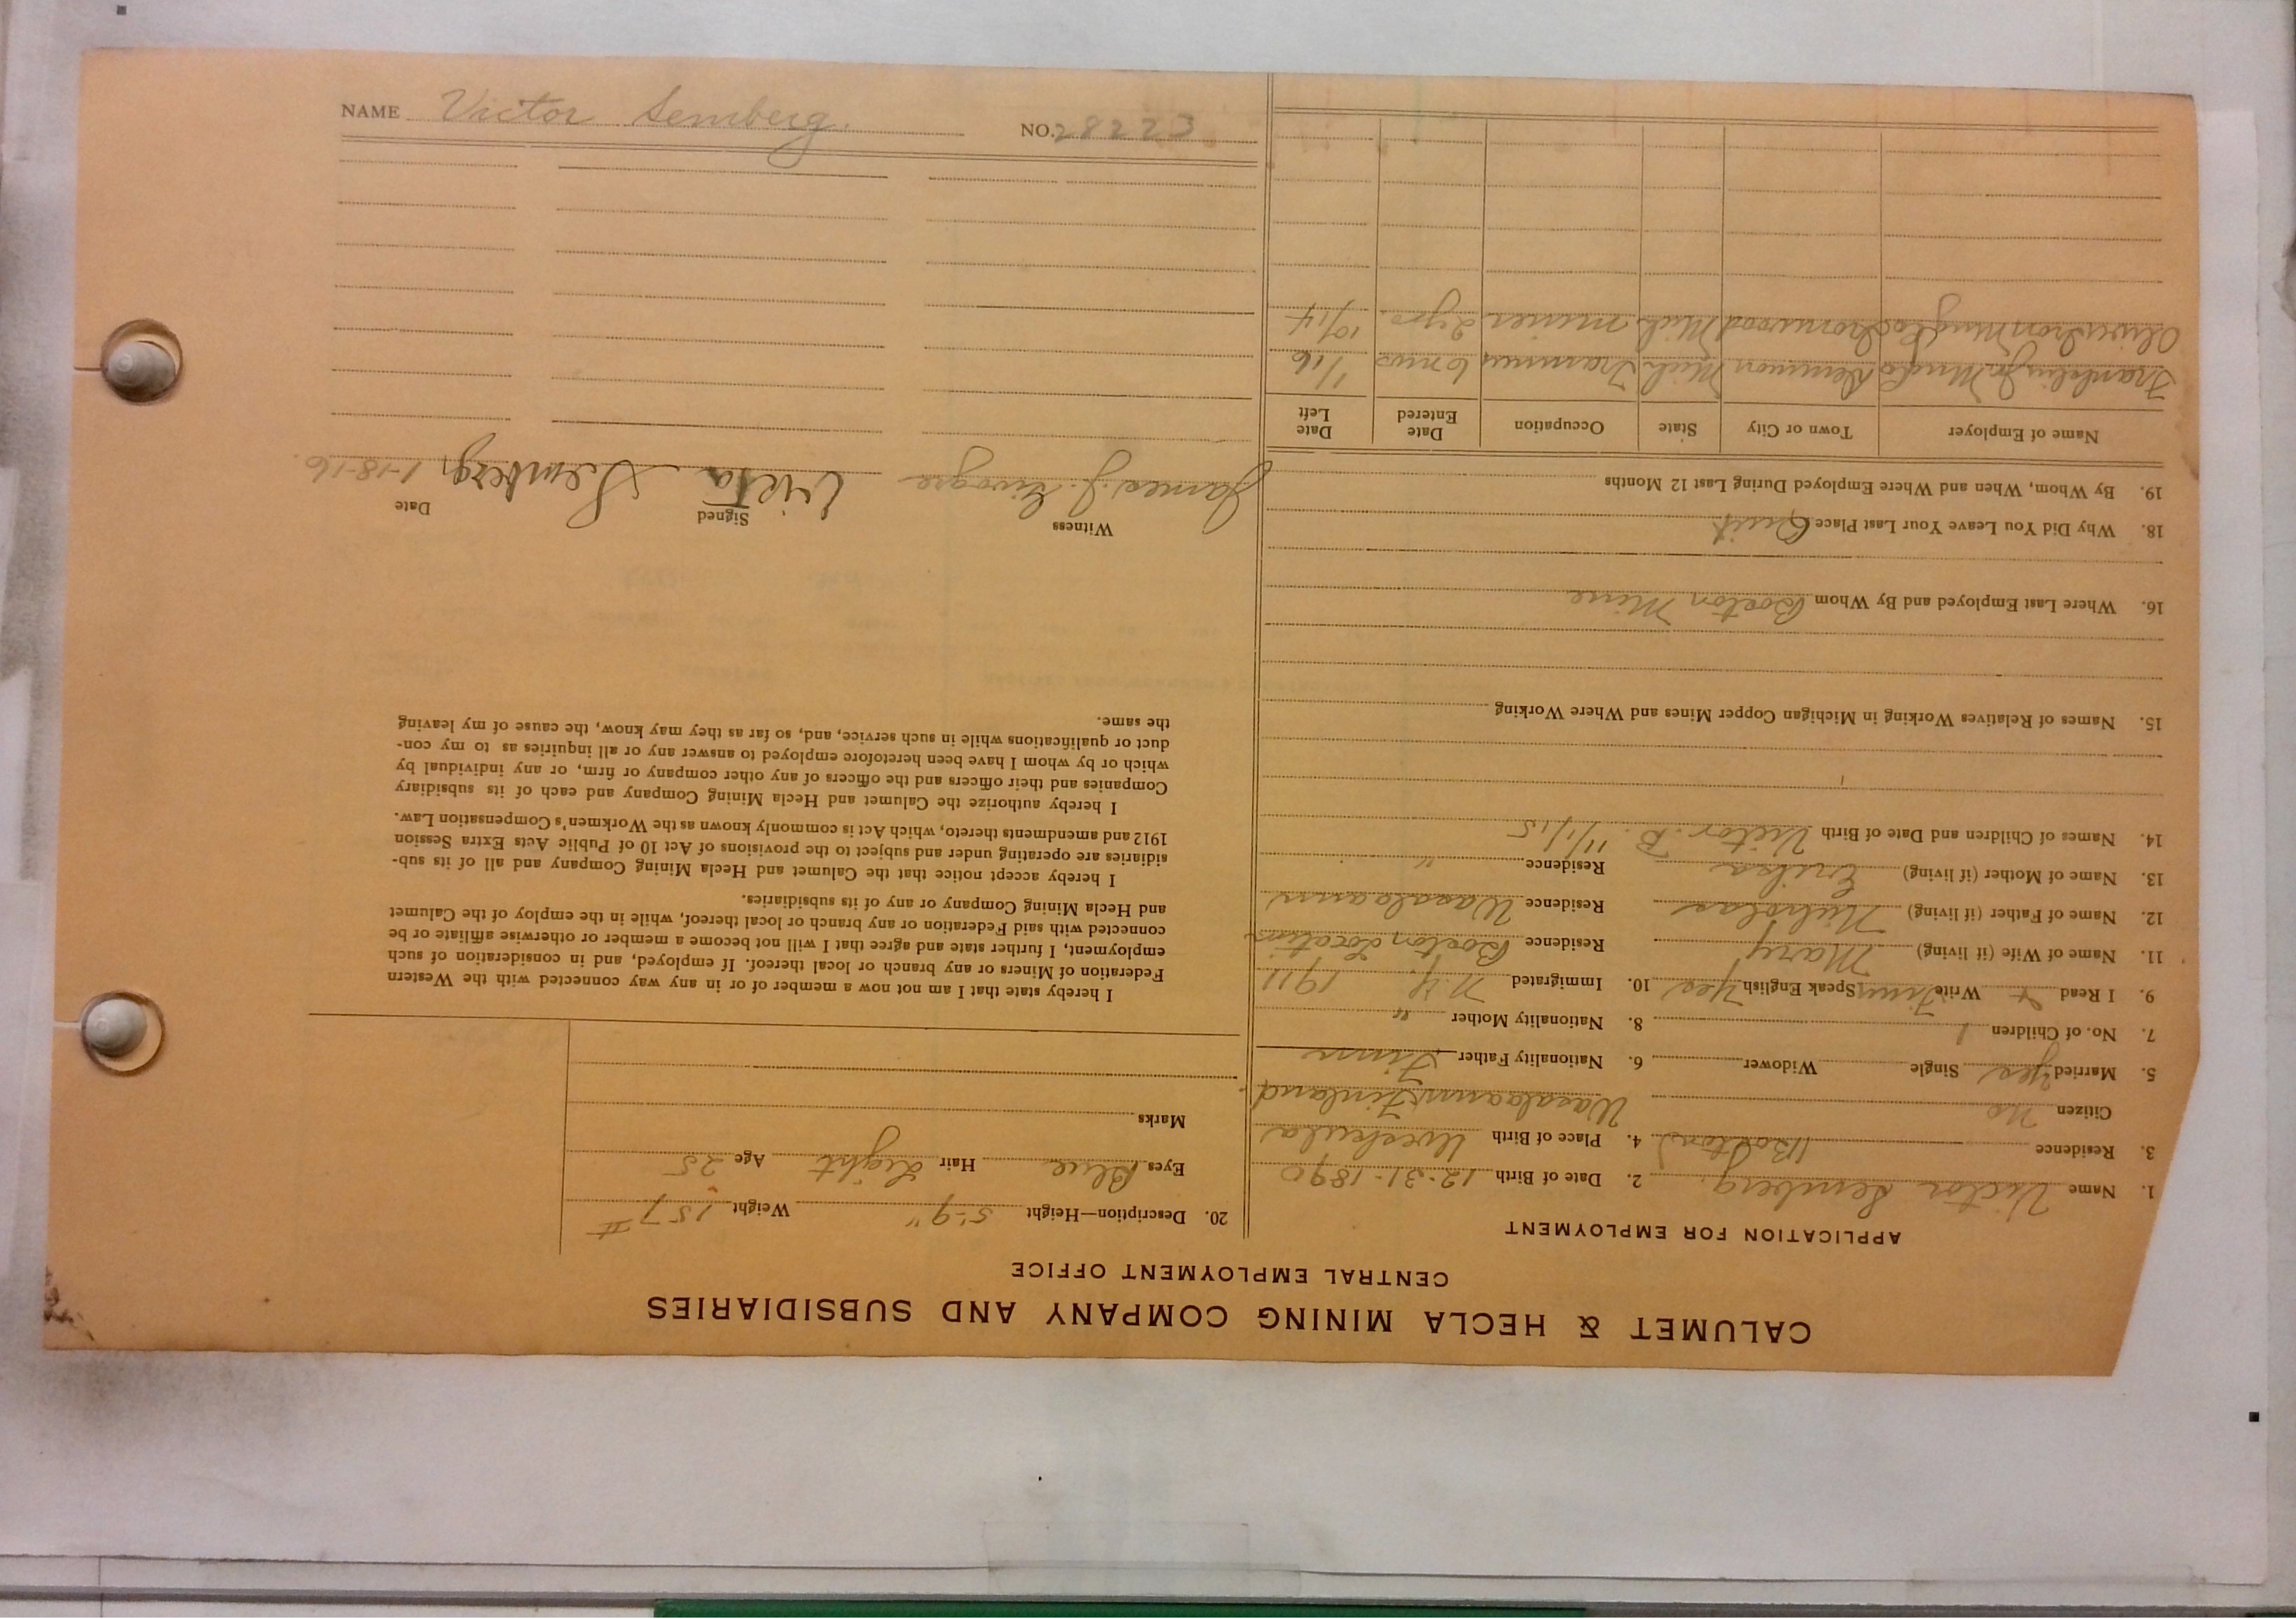 CALUMET & HECLA MINING COMPANY AND SUBSIDIARIES
CENTRAL EMPLOYMENT OFFICE
APPLICATION FOR EMPLOYMENT
1. Name Victor Semberg. 2. Date of Birth 12-31-1890
3. Residence Boston 4. Place of Birth
Citizen No Wasalaani Finland
5. Married Yes Single Widower 6. Nationality Father Finn
7. No. of Children 1 8. Nationality Mother "
9. I Read & Write Finn Speak English Yes 10. Immigrated N.Y. 1911
11. Name of Wife (if living) Mary Residence Boston Location
12. Name of Father (if living) Nicholas Residence Wasalaani
13. Name of Mother (if living) Erika Residence "
14. Names of Children and Date of Birth Victor. B. 11/1/15
15. Names of Relatives Working in Michigan Copper Mines and Where Working
16. Where Last Employed and By Whom Boston Mine
18. Why Did You Leave Your Last Place Quit
19. By Whom, When and Where Employed During Last 12 Months
Name of Employer Town or City State Occupation Date Entered Date Left
Franklin Jr. Mng Co Demmon Mich Trammer 6 mos 1/16
Oliver Iron Mng Co Ironwood Mich miner 2 yrs. 10/14
20. Description—Height 5'-9" Weight 157 #
Eyes Blue Hair Light Age 25
Marks
I hereby state that I am not now a member of or in any way connected with the Western
Federation of Miners or any branch or local thereof. If employed, and in consideration of such
employment, I further state and agree that I will not become a member or otherwise affiliate or be
connected with said Federation or any branch or local thereof, while in the employ of the Calumet
and Hecla Mining Company or any of its subsidiaries.
I hereby accept notice that the Calumet and Hecla Mining Company and all of its sub-
sidiaries are operating under and subject to the provisions of Act 10 of Public Acts Extra Session
1912 and amendments thereto, which Act is commonly known as the Workmen's Compensation Law.
I hereby authorize the Calumet and Hecla Mining Company and each of its subsidiary
Companies and their officers and the officers of any other company or firm, or any individual by
which or by whom I have been heretofore employed to answer any or all inquiries as to my con-
duct or qualifications while in such service, and, so far as they may know, the cause of my leaving
the same.
Witness Signed Date
James J. Victor Semberg, 1-18-16.
NAME Victor Semberg. NO. 28223